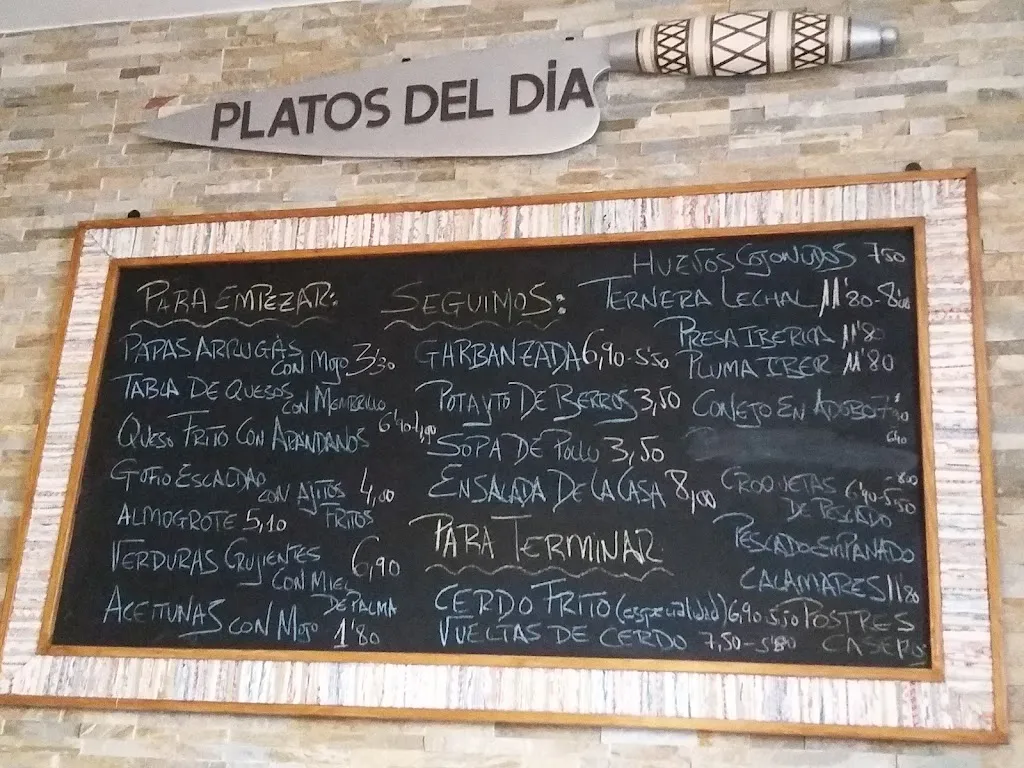 PLATOS DEL DÍA
PARA EMPEZAR:
PAPAS ARRUGAS
CON MOJO 3,30
TABLA DE QUESOS
CON MEMBRILLO
QUESO FRITO CON ARANDANOS
GOFIO ESCALDAO
CON AJITOS 4,00
FRITOS
ALMOGROTE 5,10
VERDURAS CRUJIENTES 6,90
CON MIEL
DE PALMA
ACEITUNAS CON MOJO 1'80
SEGUIMOS:
GARBANZADA 6,90-5'50
POTAJITO DE BERROS 3,50
SOPA DE POLLO 3,50
ENSALADA DE LA CASA 8,00
PARA TERMINAR
CERDO FRITO (especialidad) 6,90 5,50
VUELTAS DE CERDO 7,50-5'80
HUEVOS COJONUDOS 7'50
TERNERA LECHAL 11'80-8'00
PRESA IBERICA 11'80
PLUMA IBER 11'80
CONEJO EN ADOBO
CROQUETAS 6'90-5'50
DE PESCADO
PESCADO EMPANADO
CALAMARES 11'80
POSTRES
CASEROS